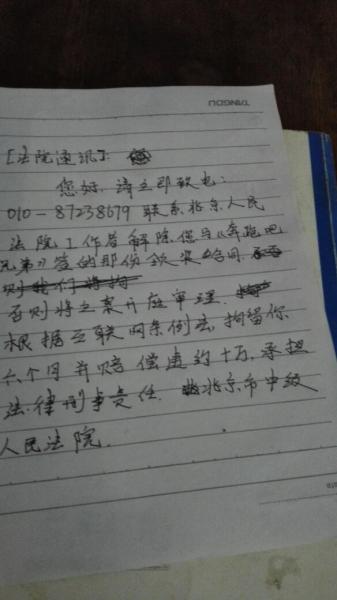 [法院通讯]:
您好.请立即致电:
010-87238679 联系北京人民
法院工作者解除您与《奔跑吧
兄弟》签的那份领奖合同.
否则将立案开庭审理.
根据互联网条例法,拘留你
六个月并赔偿违约十万,承担
法律刑事责任.北京市中级
人民法院.